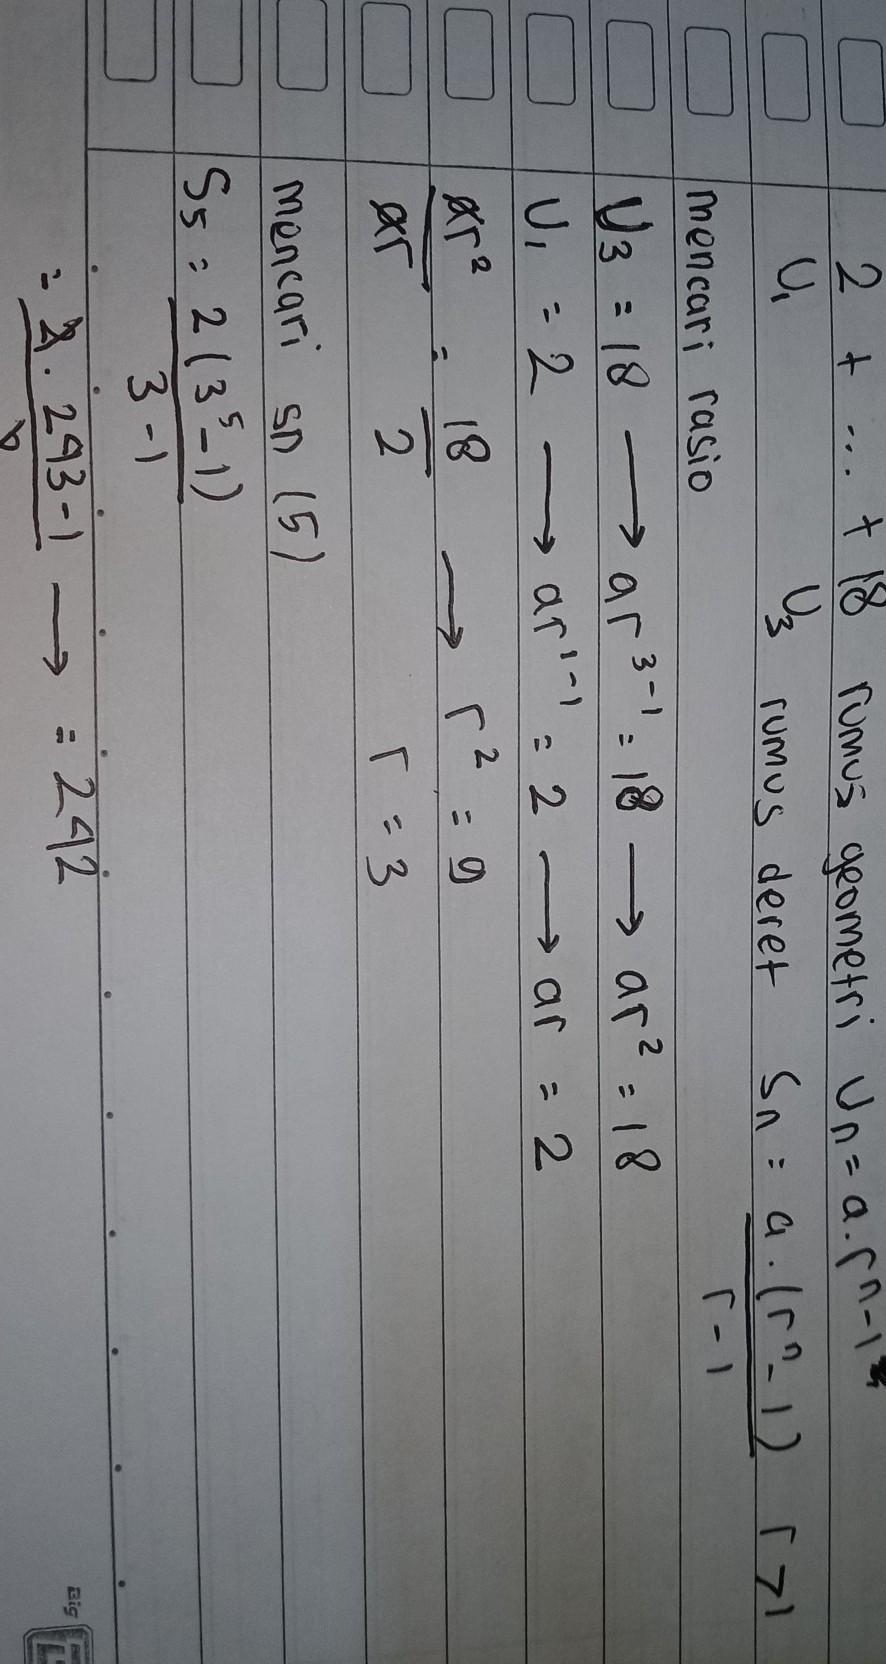 2 + ... + 18 rumus geometri Un = a.r^n-1
U1 U3 rumus deret Sn = a.(r^n - 1) r>1
r-1
mencari rasio
U3 = 18 → ar^3-1 = 18 → ar² = 18
U1 = 2 → ar^1-1 = 2 → ar = 2
ar² = 18 → r² = 9
ar 2 r = 3
mencari sn (5)
S5 = 2 (3^5 - 1)
3 - 1
= 2. 243-1 → = 242
Big